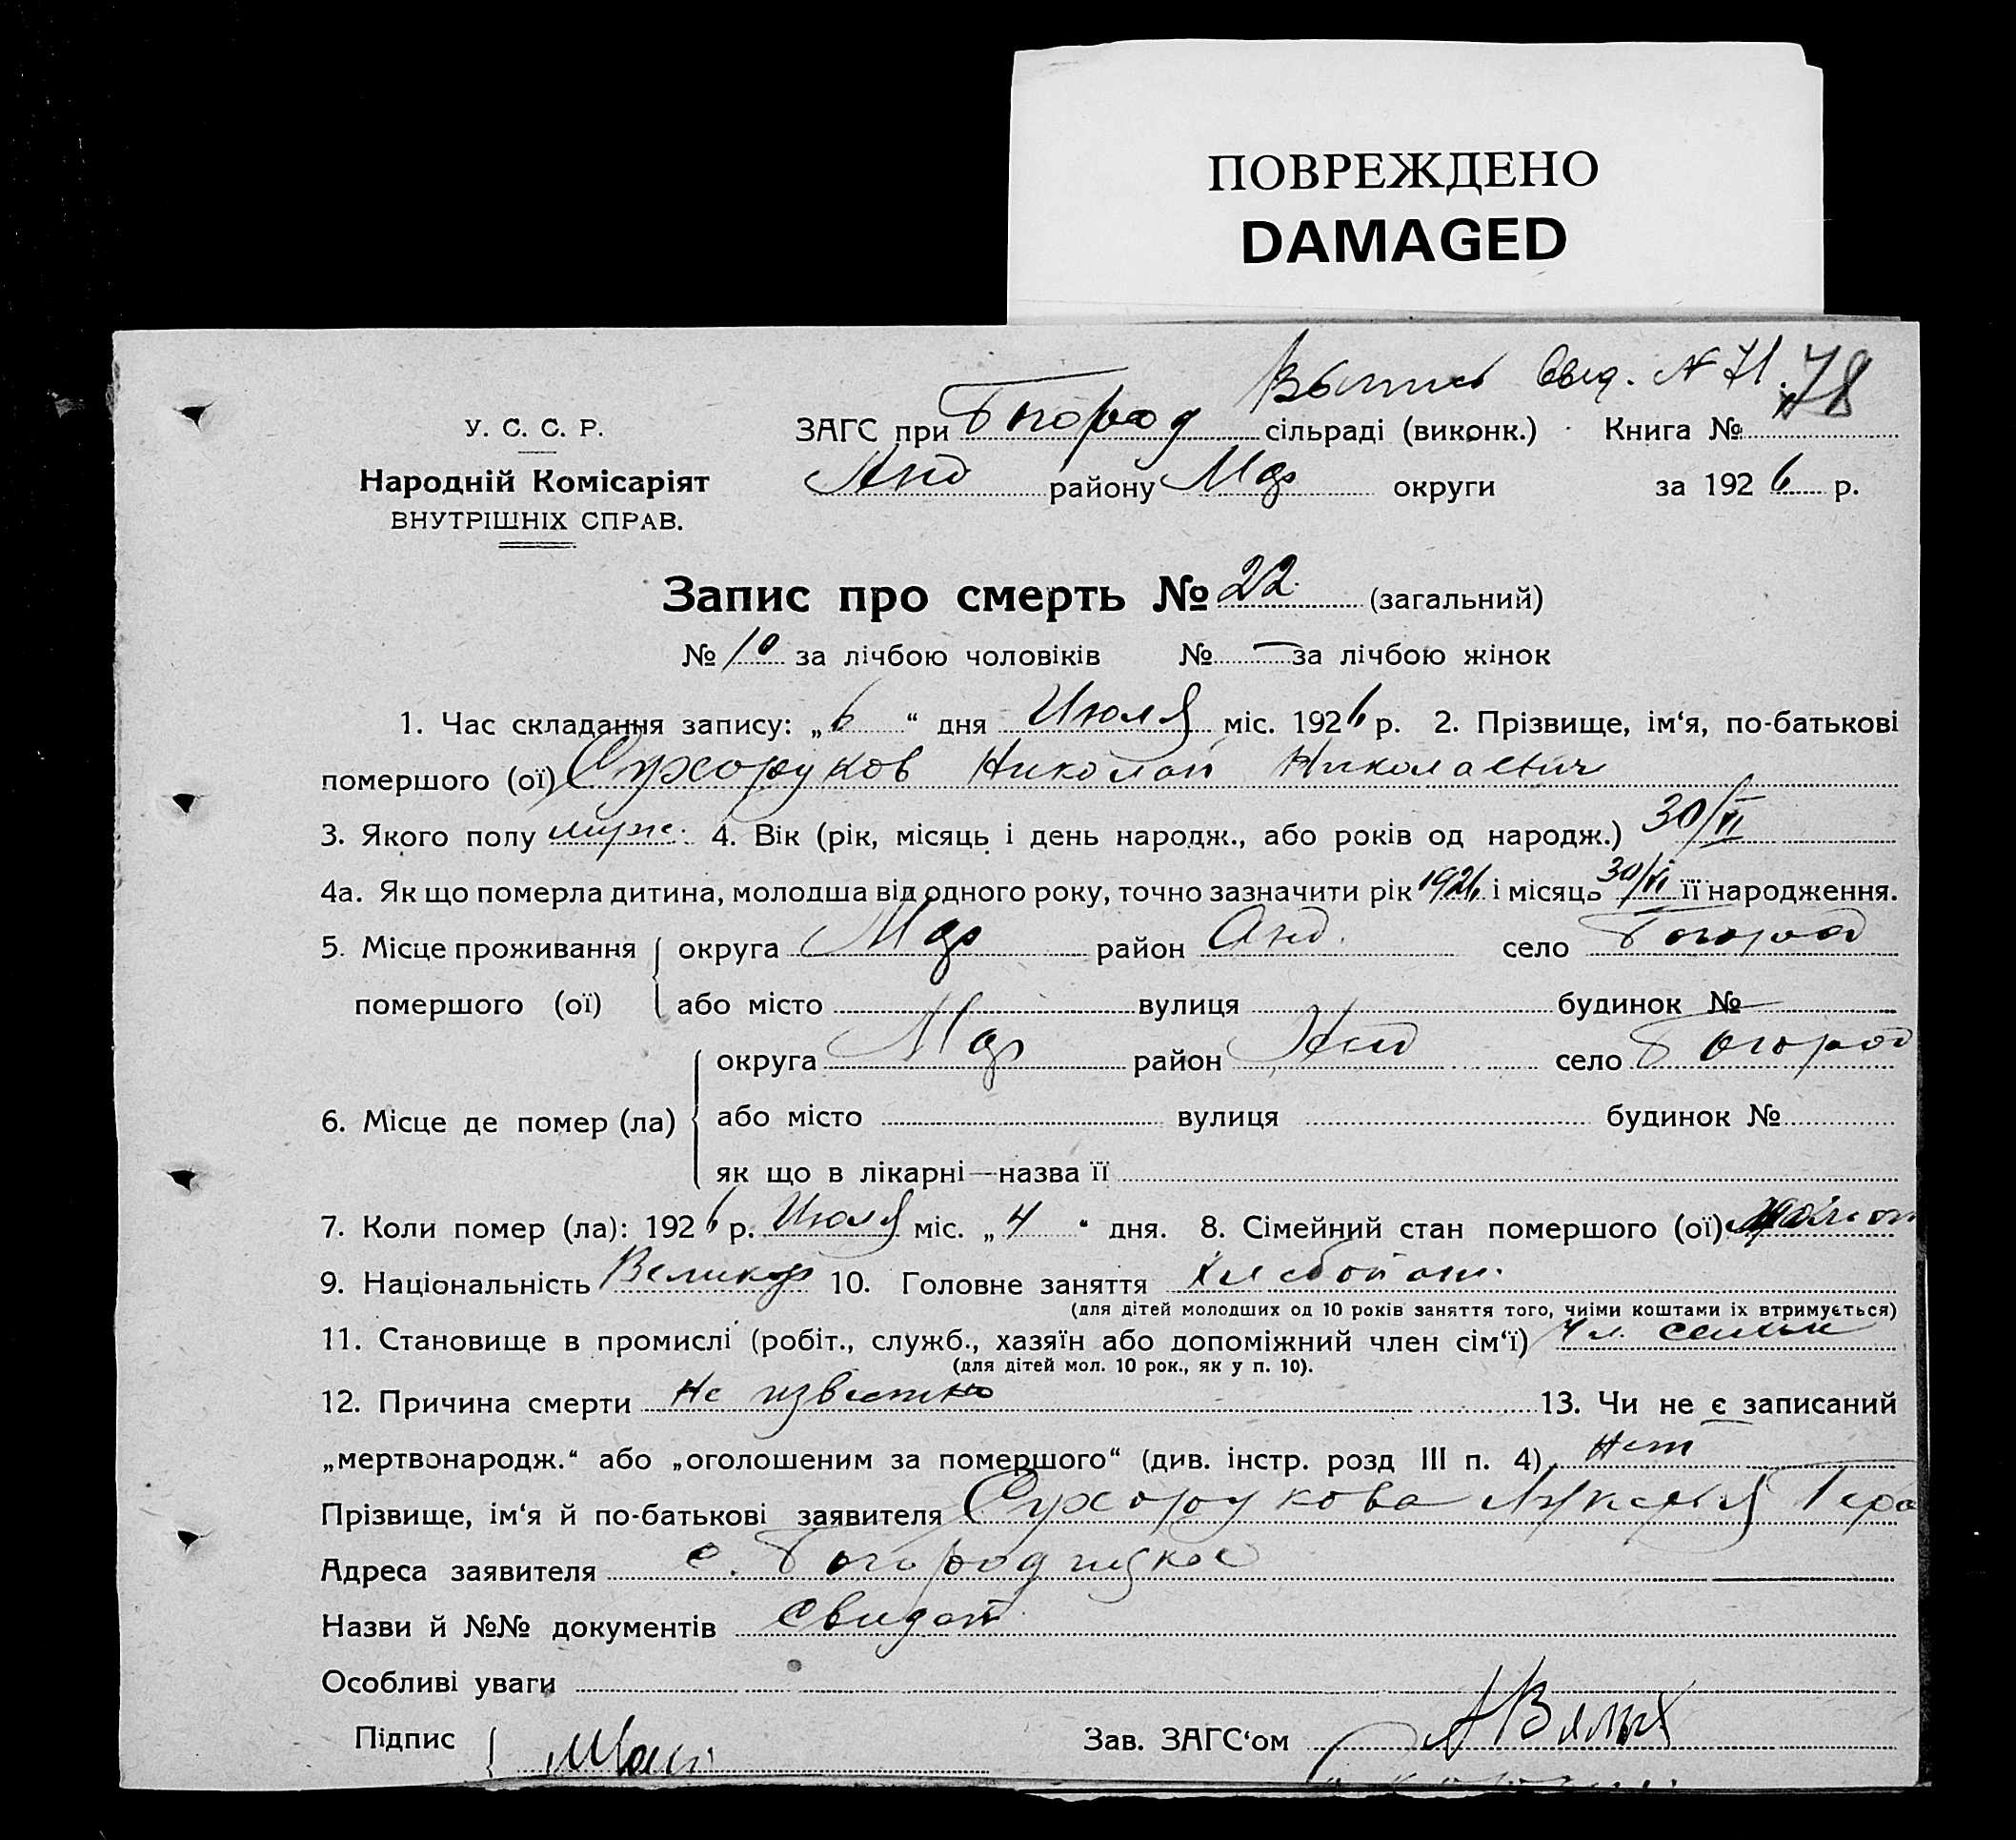 ПОВРЕЖДЕНО
DAMAGED
Выпись Свид. № 71. 78
У. С. С. Р.
ЗАГС при Бгород сільраді (виконк.) Книга №
Народній Комісаріят
Анд району Мар округи за 1926 р.
ВНУТРІШНІХ СПРАВ.
Запис про смерть № 22 (загальний)
№ 10 за лічбою чоловіків № — за лічбою жінок
1. Час складання запису: „6“ дня Июля міс. 1926 р. 2. Прізвище, ім‘я, по-батькові
помершого (ої) Сухоруков Николай Николаевич
3. Якого полу муж. 4. Вік (рік, місяць і день народж., або років од народж.) 30/VI
4а. Як що померла дитина, молодша від одного року, точно зазначити рік 1926 і місяць 30/VI її народження.
5. Місце проживання округа Мар район Анд. село Богород
помершого (ої) або місто вулиця будинок № —
округа Мар район Анд село Богород
6. Місце де помер (ла) або місто вулиця будинок №
як що в лікарні—назва її
7. Коли помер (ла): 1926 р. Июля міс. „4“ дня. 8. Сімейний стан помершого (ої)
9. Національність Великор 10. Головне заняття Хлебопаш.
(для дітей молодших од 10 років заняття того, чиїми коштами їх втримується)
11. Становище в промислі (робіт., служб., хазяїн або допоміжний член сім‘ї) Чл. семьи
(для дітей мол. 10 рок., як у п. 10).
12. Причина смерти Не известно 13. Чи не є записаний
„мертвонародж.“ або „оголошеним за помершого“ (див. інстр. розд III п. 4) Нет
Прізвище, ім‘я й по-батькові заявителя Сухорукова Лукерья Гера
Адреса заявителя с. Богородицкое
Назви й №№ документів Свидет.
Особливі уваги
Підпис Зав. ЗАГС‘ом